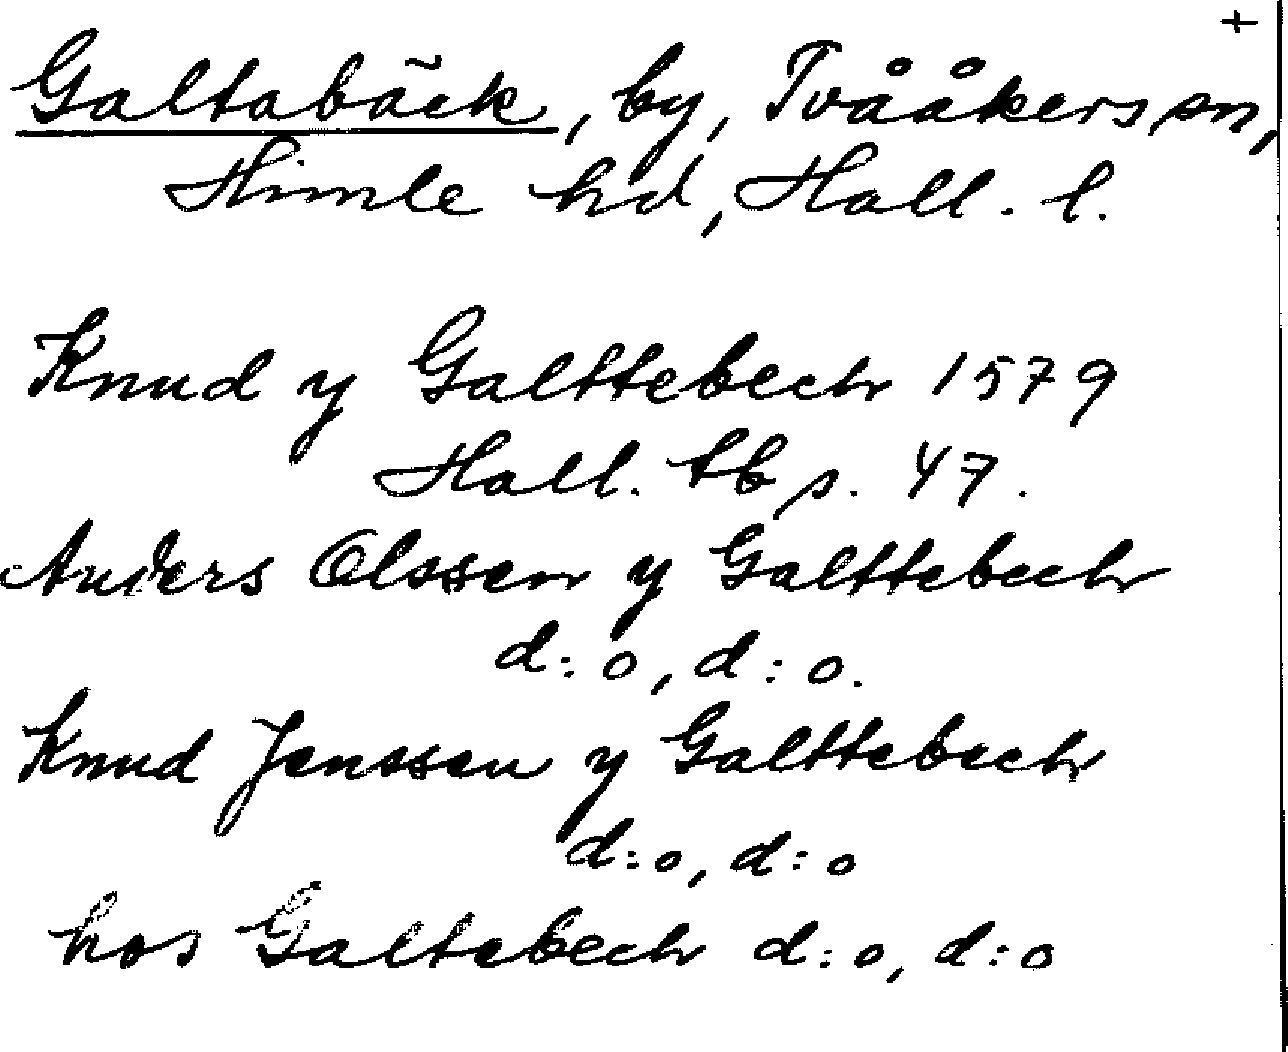 +
Galtabäck, by, Tvååkers sn,
Himle hd, Hall. l.
Knud y Galttebech 1579
Hall. tb s. 47.
Anders Olssen y Galttebech
d:o, d:o.
Knud Jenssen y Galttebech
d:o, d:o
hos Galtebech d:o, d:o